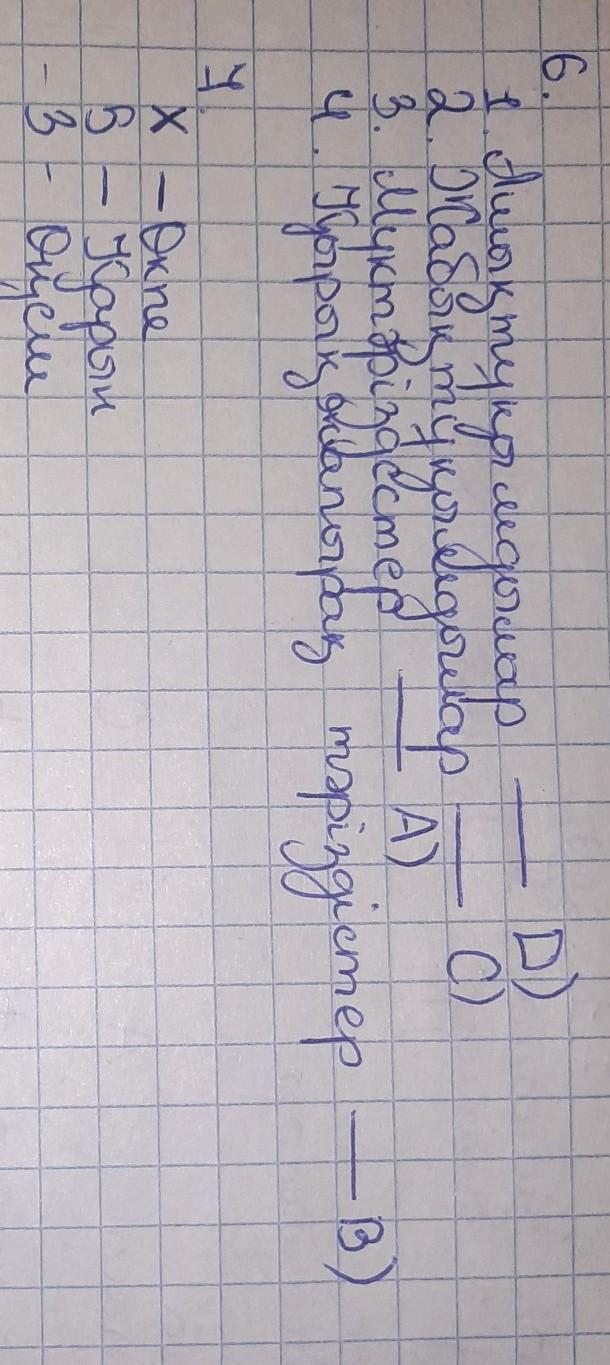 6.
1. Ашық тұқымдылар — D)
2. Жабық тұқымдылар — C)
3. Мүк тәріздестер — A)
4. Қырық жапырақ тәріздістер — B)
7.
X — Өкпе
Б — Қарын
- З - Өңеш